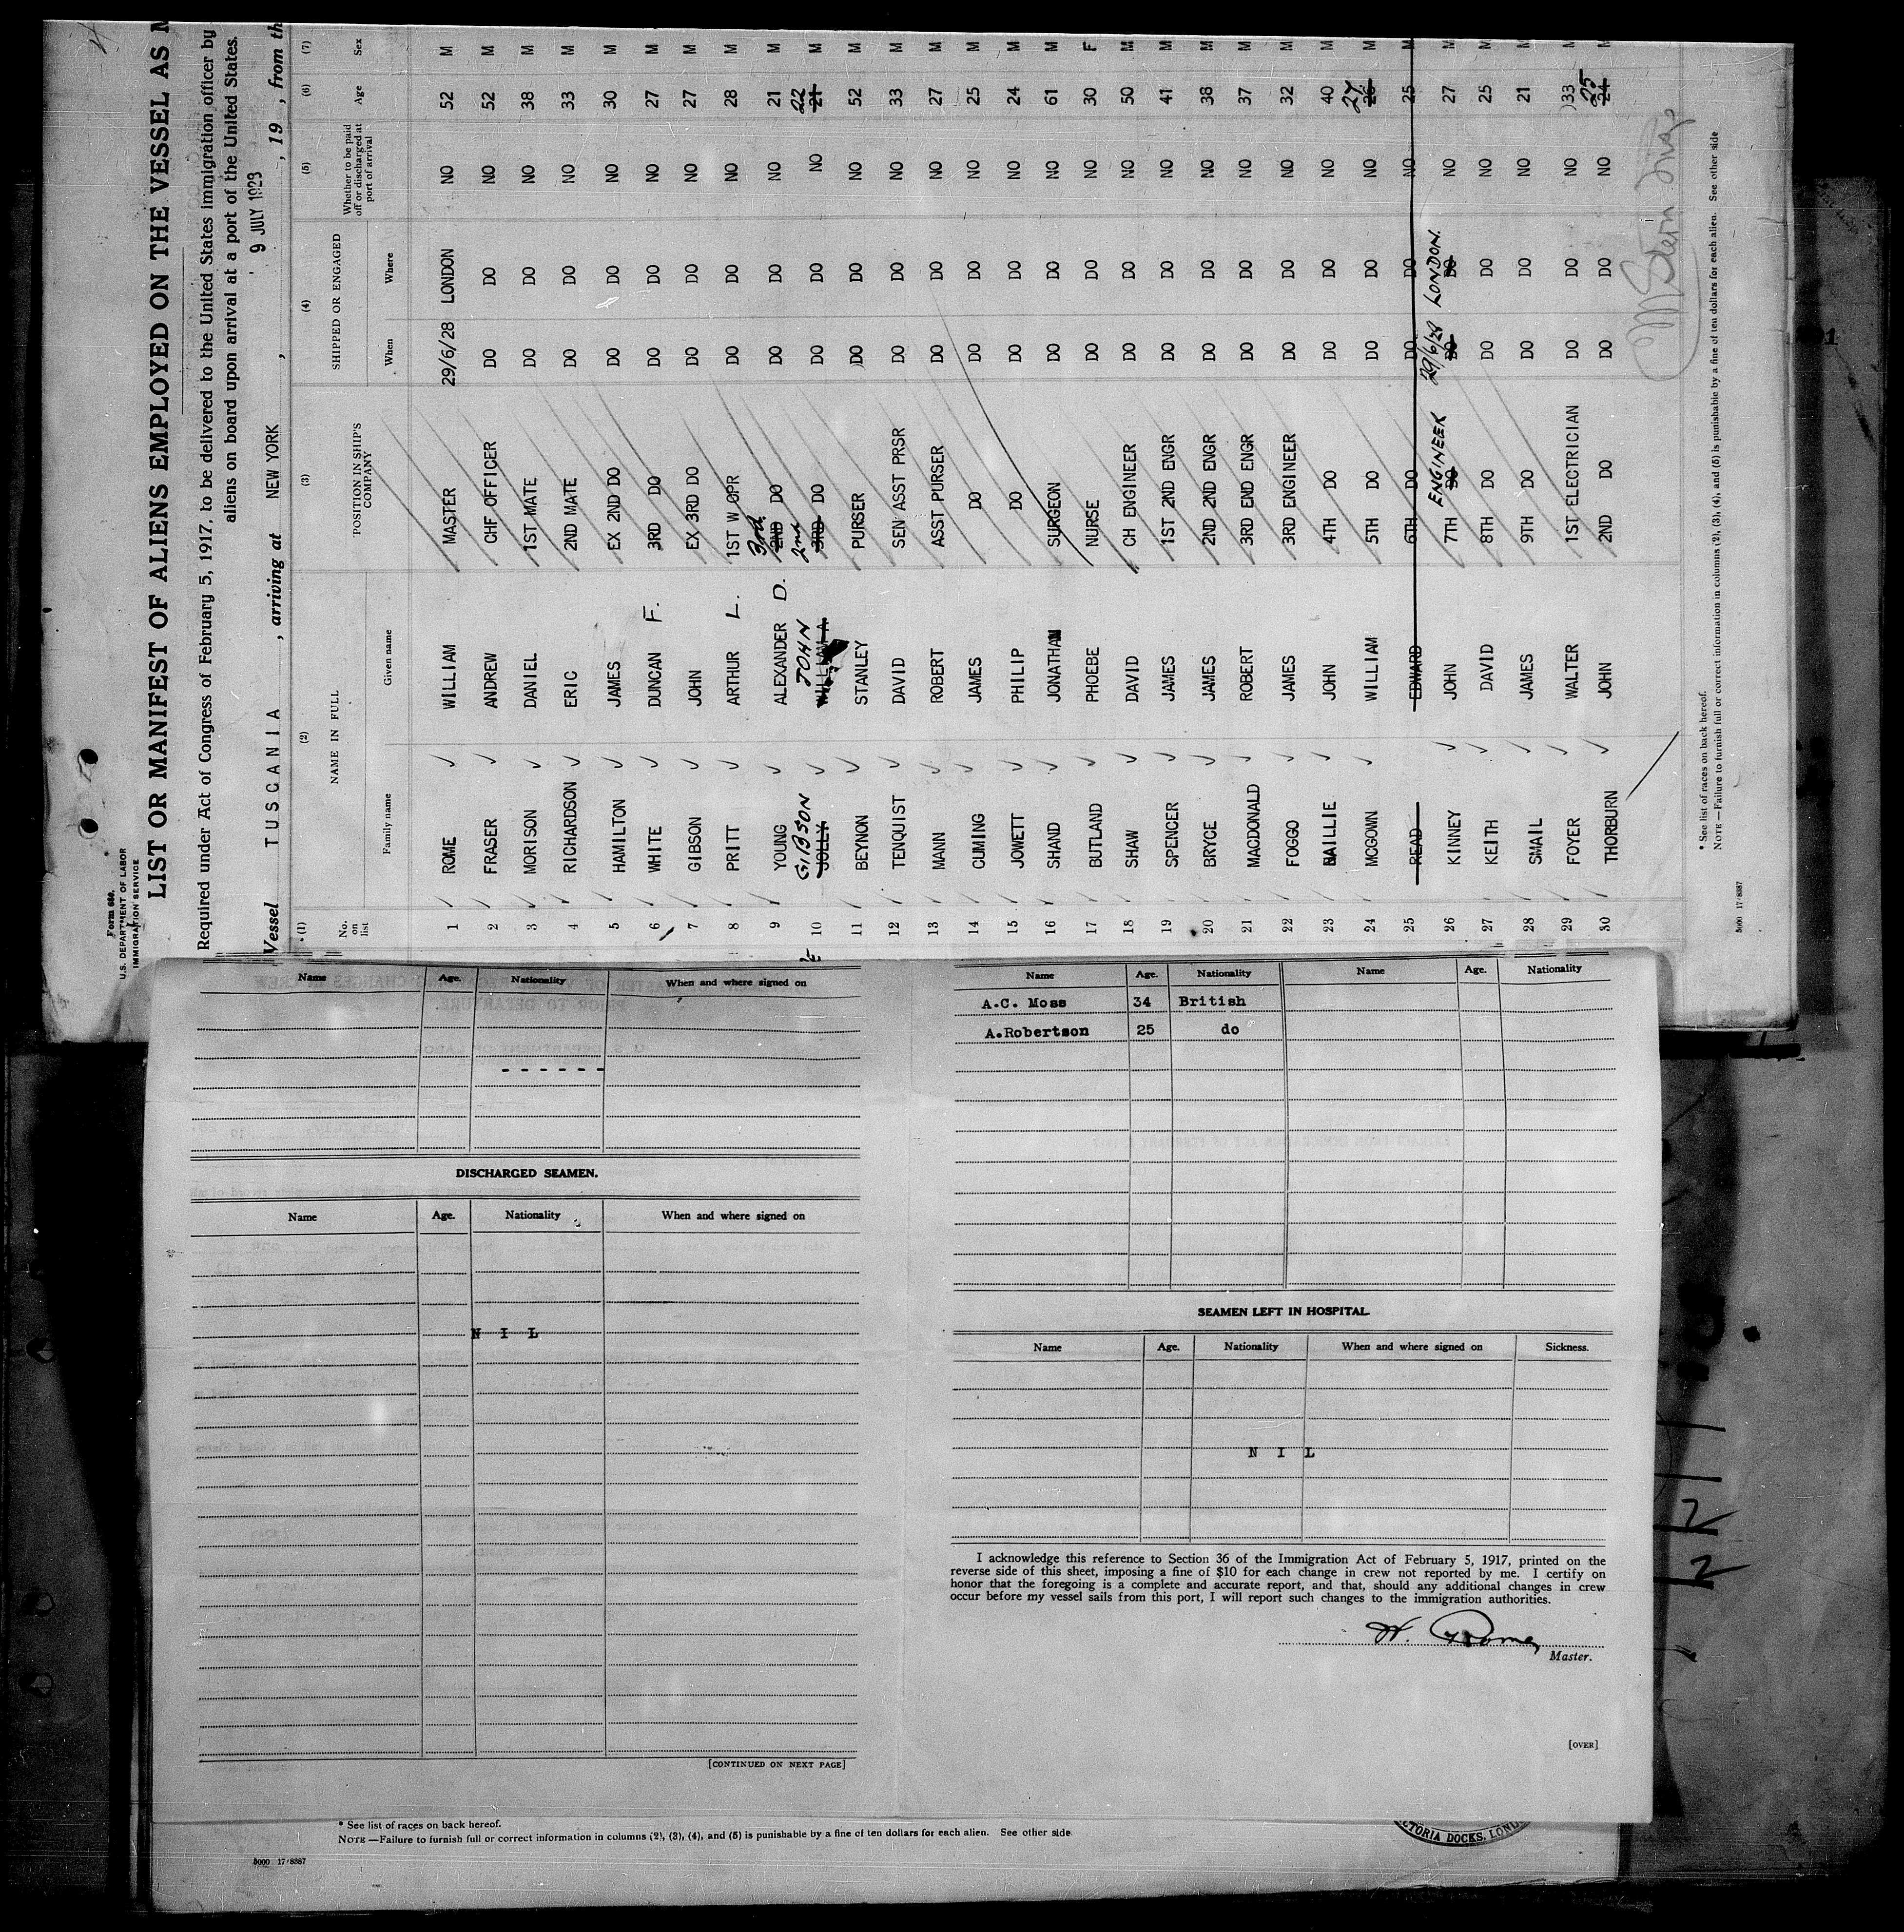 Form 680.
U.S. DEPARTMENT OF LABOR
IMMIGRATION SERVICE
LIST OR MANIFEST OF ALIENS EMPLOYED ON THE VESSEL AS M
Required under Act of Congress of February 5, 1917, to be delivered to the United States immigration officer by
aliens on board upon arrival at a port of the United States.
Vessel TUSCANIA , arriving at NEW YORK , 9 JULY 1928 , 19 , from th
(1) (2) (3) (4) (5) (6) (7)
No. on list NAME IN FULL POSITION IN SHIP'S COMPANY SHIPPED OR ENGAGED Whether to be paid off or discharged at port of arrival Age Sex
Family name Given name When Where
1 ROME WILLIAM MASTER 29/6/28 LONDON NO 52 M
2 FRASER ANDREW CHF OFFICER DO DO NO 52 M
3 MORISON DANIEL 1ST MATE DO DO NO 38 M
4 RICHARDSON ERIC 2ND MATE DO DO NO 33 M
5 HAMILTON JAMES EX 2ND DO DO DO NO 30 M
6 WHITE DUNCAN F. 3RD DO DO DO NO 27 M
7 GIBSON JOHN EX 3RD DO DO DO NO 27 M
8 PRITT ARTHUR L. 1ST W OPR DO DO NO 28 M
9 YOUNG ALEXANDER D. 2ND 3rd DO DO DO NO 21 M
10 JOLLY GIBSON WILLIAM A JOHN 3RD 2nd DO DO DO NO 21 22 M
11 BEYNON STANLEY PURSER DO DO NO 52 M
12 TENQUIST DAVID SEN ASST PRSR DO DO NO 33 M
13 MANN ROBERT ASST PURSER DO DO NO 27 M
14 CUMING JAMES DO DO DO NO 25 M
15 JOWETT PHILIP DO DO DO NO 24 M
16 SHAND JONATHAN SURGEON DO DO NO 61 M
17 BUTLAND PHOEBE NURSE DO DO NO 30 F
18 SHAW DAVID CH ENGINEER DO DO NO 50 M
19 SPENCER JAMES 1ST 2ND ENGR DO DO NO 41 M
20 BRYCE JAMES 2ND 2ND ENGR DO DO NO 38 M
21 MACDONALD ROBERT 3RD END ENGR DO DO NO 37 M
22 FOGGO JAMES 3RD ENGINEER DO DO NO 32 M
23 BAILLIE JOHN 4TH DO DO DO NO 40 M
24 MCGOWN WILLIAM 5TH DO DO DO NO 26 27 M
25 READ EDWARD 6TH DO DO DO NO 25 M
26 KINNEY JOHN 7TH DO ENGINEER DO 29/6/28 DO LONDON. NO 27 M
27 KEITH DAVID 8TH DO DO DO NO 25 M
28 SMAIL JAMES 9TH DO DO DO NO 21 M
29 FOYER WALTER 1ST ELECTRICIAN DO DO NO 33 M
30 THORBURN JOHN 2ND DO DO DO NO 24 25 M
* See list of races on back hereof.
NOTE.—Failure to furnish full or correct information in columns (2), (3), (4), and (5) is punishable by a fine of ten dollars for each alien. See other side
5000 17/8387
Name Age. Nationality When and where signed on
- - - - - -
DISCHARGED SEAMEN.
Name Age. Nationality When and where signed on
N I L
[CONTINUED ON NEXT PAGE]
Name Age. Nationality Name Age. Nationality
A.C. Moss 34 British
A.Robertson 25 do
SEAMEN LEFT IN HOSPITAL.
Name Age. Nationality When and where signed on Sickness.
N I L
I acknowledge this reference to Section 36 of the Immigration Act of February 5, 1917, printed on the
reverse side of this sheet, imposing a fine of $10 for each change in crew not reported by me. I certify on
honor that the foregoing is a complete and accurate report, and that, should any additional changes in crew
occur before my vessel sails from this port, I will report such changes to the immigration authorities.
W. Rome,
Master.
[OVER]
* See list of races on back hereof.
NOTE —Failure to furnish full or correct information in columns (2), (3), (4), and (5) is punishable by a fine of ten dollars for each alien. See other side
5000 17/8387
TORIA DOCKS, LOND